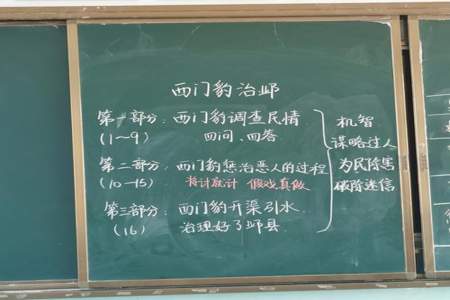 西门豹治邺
第一部分：西门豹调查民情
(1～9) 四问、四答
第二部分：西门豹惩治恶人的过程
(10-15) 将计就计 假戏真做
第三部分：西门豹开渠引水
(16) 治理好了邺县
机智
谋略过人
为民除害
破除迷信